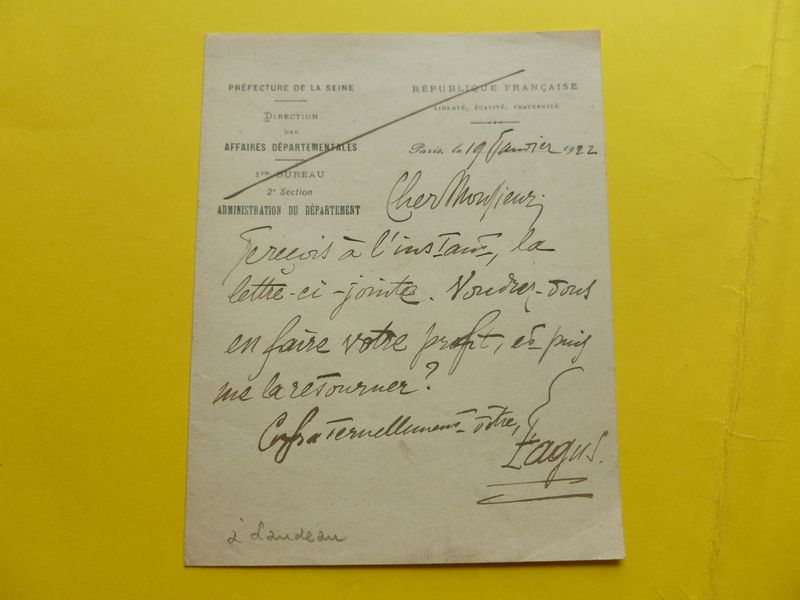 PRÉFECTURE DE LA SEINE
DIRECTION
DES
AFFAIRES DÉPARTEMENTALES
1ER BUREAU
2e Section
ADMINISTRATION DU DÉPARTEMENT
RÉPUBLIQUE FRANÇAISE
LIBERTÉ, ÉGALITÉ, FRATERNITÉ
Paris, le 19 Janvier 1922
Cher Monsieur,
Je reçois à l'instant, la
lettre-ci-jointe. Voudrez-vous
en faire votre profit, et puis
me la retourner?
Confraternellement vôtre,
Fagus.
à Landeau